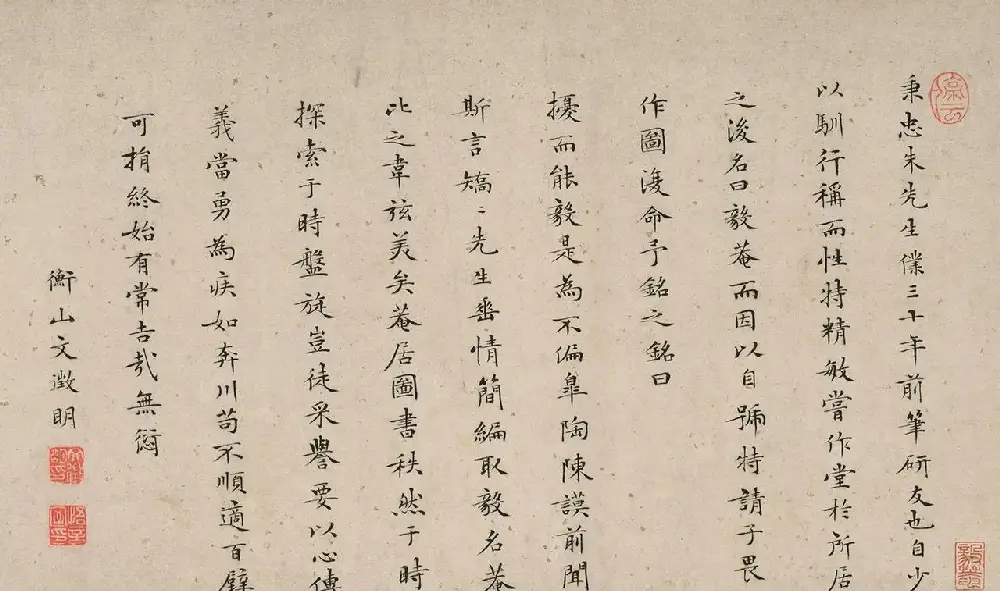 秉忠朱先生僕三十年前筆研友也自少
以馴行稱而性特精敏嘗作堂於所居
之後名曰毅菴而因以自號特請子畏
作圖復命予銘之銘曰
擾而能毅是為不偏皐陶陳謨前聞
斯言矯〻先生耑情簡編取毅名菴
比之韋弦美矣菴居圖書秩然于時
探索于時盤旋豈徒采譽要以心傳
義當勇為疾如奔川苟不順適百辟
可捐終始有常吉哉無愆
衡山文徵明